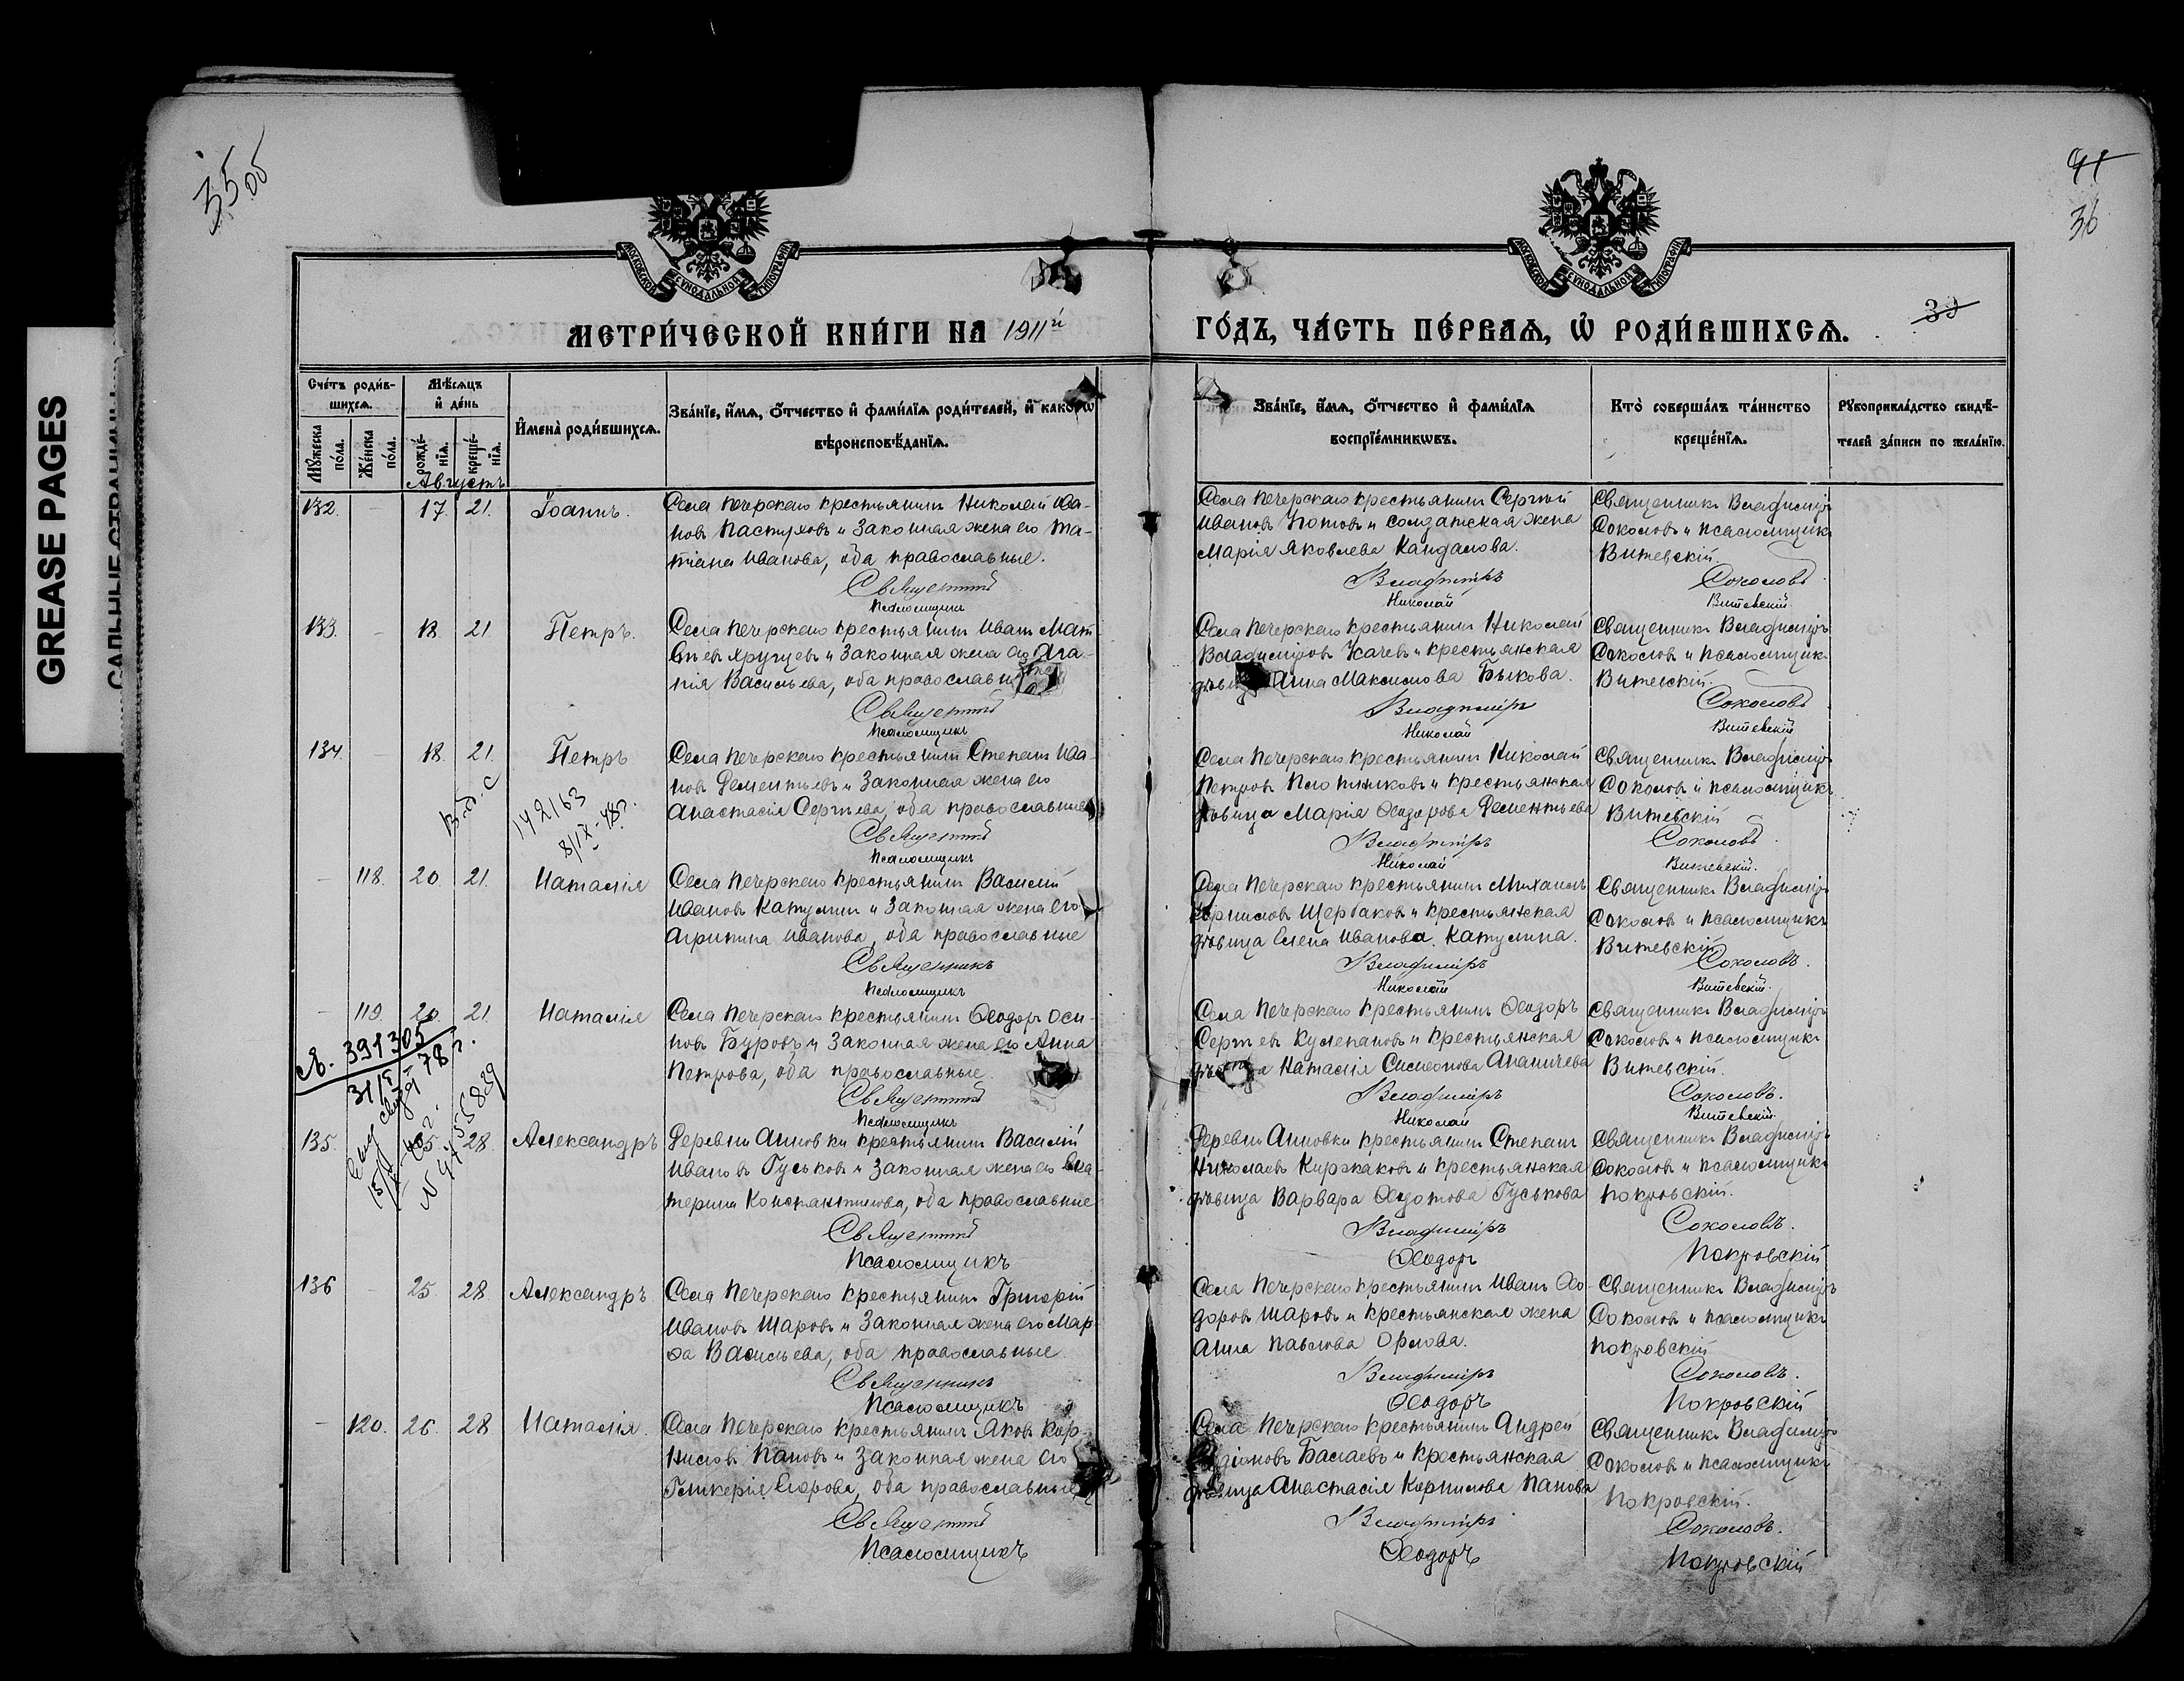 GREASE PAGES
САЛЬНЫЕ СТРАНИЦЫ
35 об
41
36
39
МОСКОВСКОЙ СУНОДАЛЬНОЙ ТИПОГРАФІИ
МОСКОВСКОЙ СУНОДАЛЬНОЙ ТИПОГРАФІИ
МЕТРИ́ЧЕСКОЙ КНИ́ГИ НА 1911й ГО́ДЪ, ЧА́СТЬ ПЕ́РВАЯ, Ѡ РОДИ́ВШИХСЯ.
Сче́тъ роди́в-
шихся.
Мѣсяцъ
и де́нь
Мꙋжеска по́ла.
Же́нска по́ла.
рожде́-
нїя.
креще́-
нїя.
Августъ
Имена̀ роди́вшихся.
Зва́нїе, и́мя, о́тчество и фами́лїя роди́телей, и како́гѡ
вѣроисповѣ́данїя.
Зва́нїе, и́мя, о́тчество и фами́лїя
воспрїе́мникѡвъ.
Кто̀ соверша́лъ та́инство
креще́нїя.
Рꙋкоприкла́дство свидѣ́-
телей за́писи по жела́нїю.
132. - 17. 21. Іоаннъ.
Села Печерскаго крестьянинъ Николай Ива-
новъ Пастуховъ и законная жена его Та-
тіана Иванова, оба православные.
Священникъ
Псаломщикъ
Села Печерскаго крестьянинъ Сергѣй
Ивановъ Котовъ и солдатская жена
Марія Яковлева Кандалова.
Владиміръ
Николай
Священникъ Владиміръ
Соколовъ и псаломщикъ
Витевскій.
Соколовъ
Витевскій.
133. - 18. 21. Петръ.
Села Печерскаго крестьянинъ Иванъ Мат-
вѣевъ Хрущевъ и законная жена его Ага-
пія Васильева, оба православные
Священникъ
Псаломщикъ
Села Печерскаго крестьянинъ Николай
Владиміровъ Усачевъ и крестьянская
дѣвица Анна Максимова Быкова.
Владиміръ
Николай
Священникъ Владиміръ
Соколовъ и псаломщикъ
Витевскій.
Соколовъ
Витевскій
134. - 18. 21. Петръ
142163
8/IX-48г.
Села Печерскаго крестьянинъ Степанъ Ива-
новъ Дементьевъ и законная жена его
Анастасія Сергѣева, оба православные
Священникъ
Псаломщикъ
Села Печерскаго крестьянинъ Николай
Петровъ Плотниковъ и крестьянская
дѣвица Марія Ѳеодорова Дементьева
Владиміръ
Николай
Священникъ Владиміръ
Соколовъ и псаломщикъ
Витевскій
Соколовъ
Витевскій.
- 118. 20. 21. Наталія
Села Печерскаго крестьянинъ Василій
Ивановъ Катулинъ и законная жена его
Агрипина Иванова, оба православные
Священникъ
Псаломщикъ
Села Печерскаго крестьянинъ Михаилъ
Корниловъ Щербаковъ и крестьянская
дѣвица Елена Иванова Катулина.
Владиміръ
Николай
Священникъ Владиміръ
Соколовъ и псаломщикъ
Витевскій.
Соколовъ.
Витевскій.
- 119. 20. 21. Наталія
391305
78г.
Села Печерскаго крестьянинъ Ѳеодоръ Оси-
повъ Буровъ и законная жена его Анна
Петрова, оба православные.
Священникъ
Псаломщикъ
Села Печерскаго крестьянинъ Ѳеодоръ
Сергѣевъ Кулепановъ и крестьянская
дѣвица Наталія Симеонова Ананичева
Владиміръ
Николай
Священникъ Владиміръ
Соколовъ и псаломщикъ
Витевскій.
Соколовъ.
Витевскій.
135. 25. 28. Александръ
Деревни Анновки крестьянинъ Василій
Ивановъ Гуськовъ и законная жена его Ека-
терина Константинова, оба православные
Священникъ
Псаломщикъ
Деревни Анновки крестьянинъ Степанъ
Николаевъ Киржаковъ и крестьянская
дѣвица Варвара Ѳедотова Гуськова
Владиміръ
Ѳеодоръ
Священникъ Владиміръ
Соколовъ и псаломщикъ
Покровскій.
Соколовъ.
Покровскій
136 - 25. 28 Александръ.
Села Печерскаго крестьянинъ Григорій
Ивановъ Шаровъ и законная жена его Мар-
ѳа Васильева, оба православные.
Священникъ
Псаломщикъ
Села Печерскаго крестьянинъ Иванъ Ѳео-
доровъ Шаровъ и крестьянская жена
Анна Павлова Орлова.
Владиміръ
Ѳеодоръ
Священникъ Владиміръ
Соколовъ и псаломщикъ
Покровскій
Соколовъ.
Покровскій
- 120. 26. 28 Наталія.
Села Печерскаго крестьянинъ Яковъ Кор-
ниловъ Пановъ и законная жена его
Гликерія Егорова, оба православные
Священникъ
Псаломщикъ
Села Печерскаго крестьянинъ Андрей
Балаевъ и крестьянская
дѣвица Анастасія Корнилова Панова
Владиміръ
Ѳеодоръ
Священникъ Владиміръ
Соколовъ и псаломщикъ
Покровскій.
Соколовъ.
Покровскій